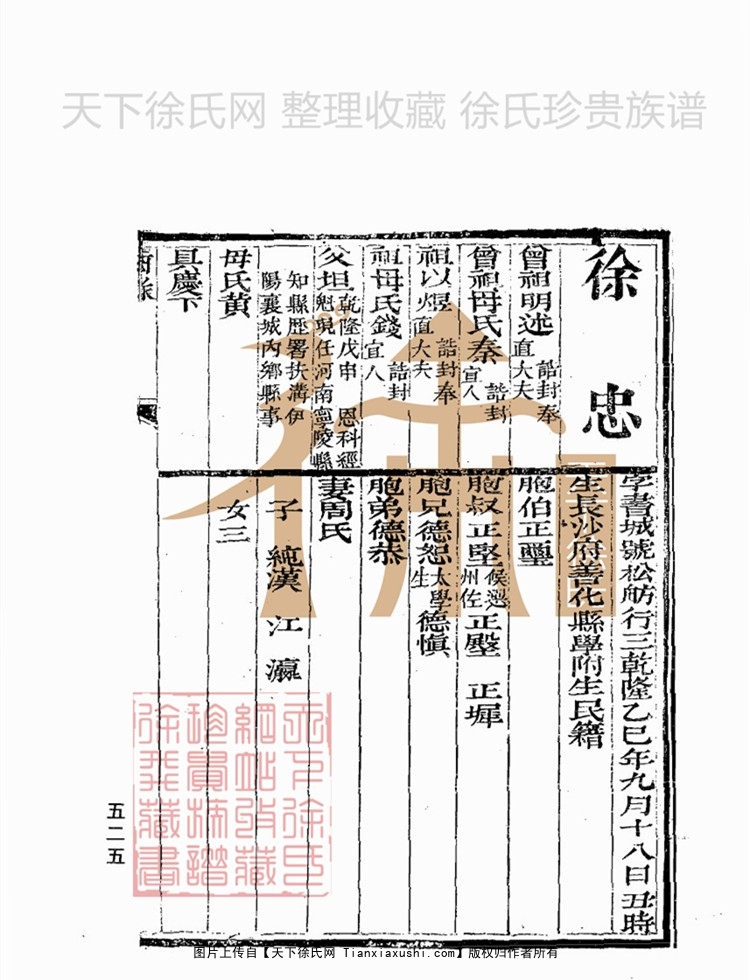 天下徐氏网 整理收藏 徐氏珍贵族谱
徐忠
字書城號松舫行三乾隆乙巳年九月十八日丑時
生長沙府善化縣學附生民籍
曾祖明述 誥封奉直大夫
曾祖母氏秦 誥封宜人
祖以煜 誥封奉直大夫
祖母氏錢 誥封宜人
父坦 乾隆戊申恩科經魁現任河南寧陵縣知縣歷署扶溝伊陽襄城內鄉縣事
母氏黄
具慶下
胞伯正璽
胞叔正堅 候選州佐 正墼 正墀
胞兄德恕 太學生 德愼
胞弟德恭
妻周氏
子 純漢 江 瀛
女三
五二五
天下徐氏網站收藏珍貴族譜徐我藏書
图片上传自【天下徐氏网 Tianxiaxushi.com】版权归作者所有